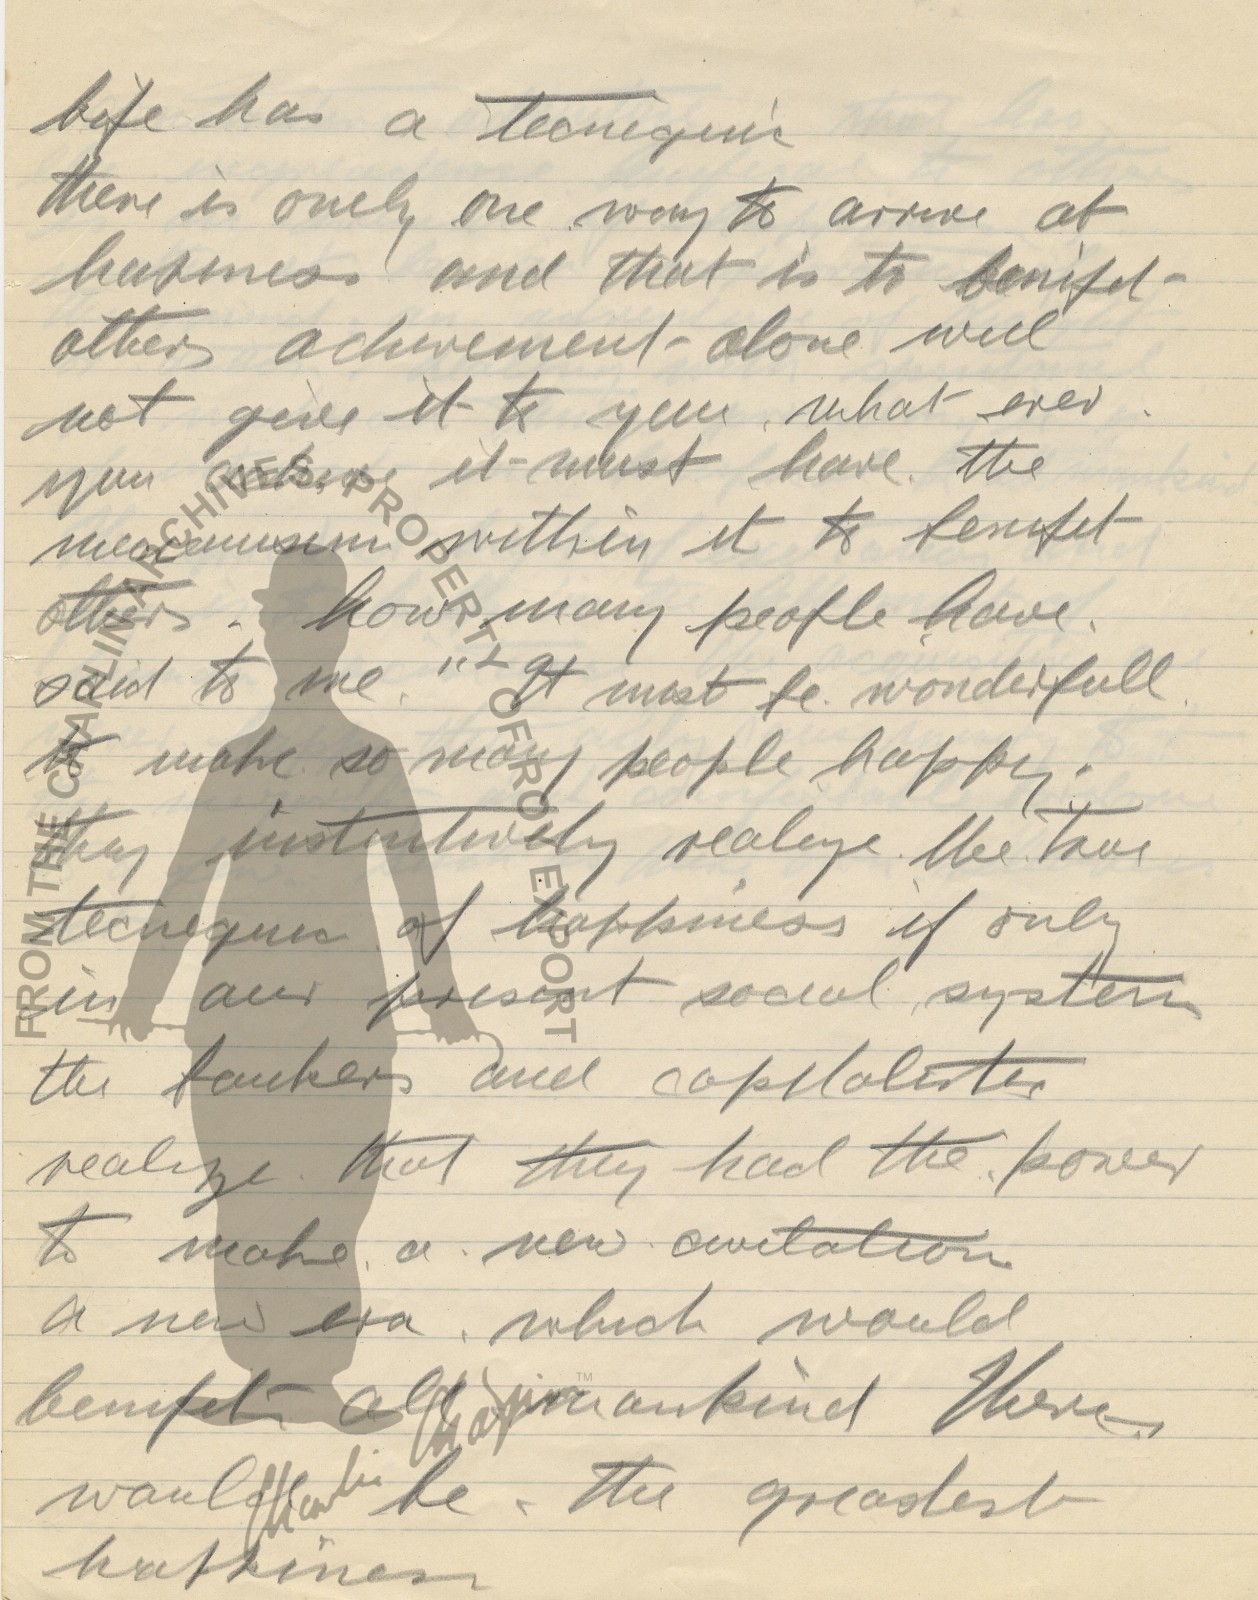 life has a tecniquie
there is onely one way to arrive at
happiness and that is to benifet
others achivement alone will
not give it to you. what ever
you achive it must have the
mecanisim within it to benifet
others. how many people have
said to me. "It must be wonderfull
to make so many people happy.
they instintively realize the true
tecnique of happiness if only
in our present social system
the bankers and capitalistes
realize that they had the power
to make a new
a new era. which would
benifet all mankind Theres
would be the greatest
happiness
FROM THE CHAPLIN ARCHIVES, PROPERTY OF ROY EXPORT
Charlie Chaplin
TM